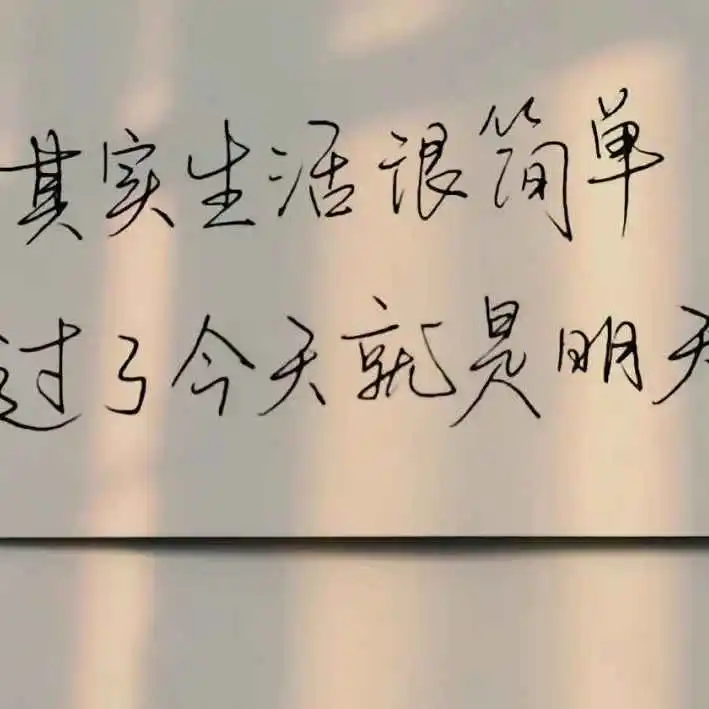 其实生活很简单
过了今天就是明天